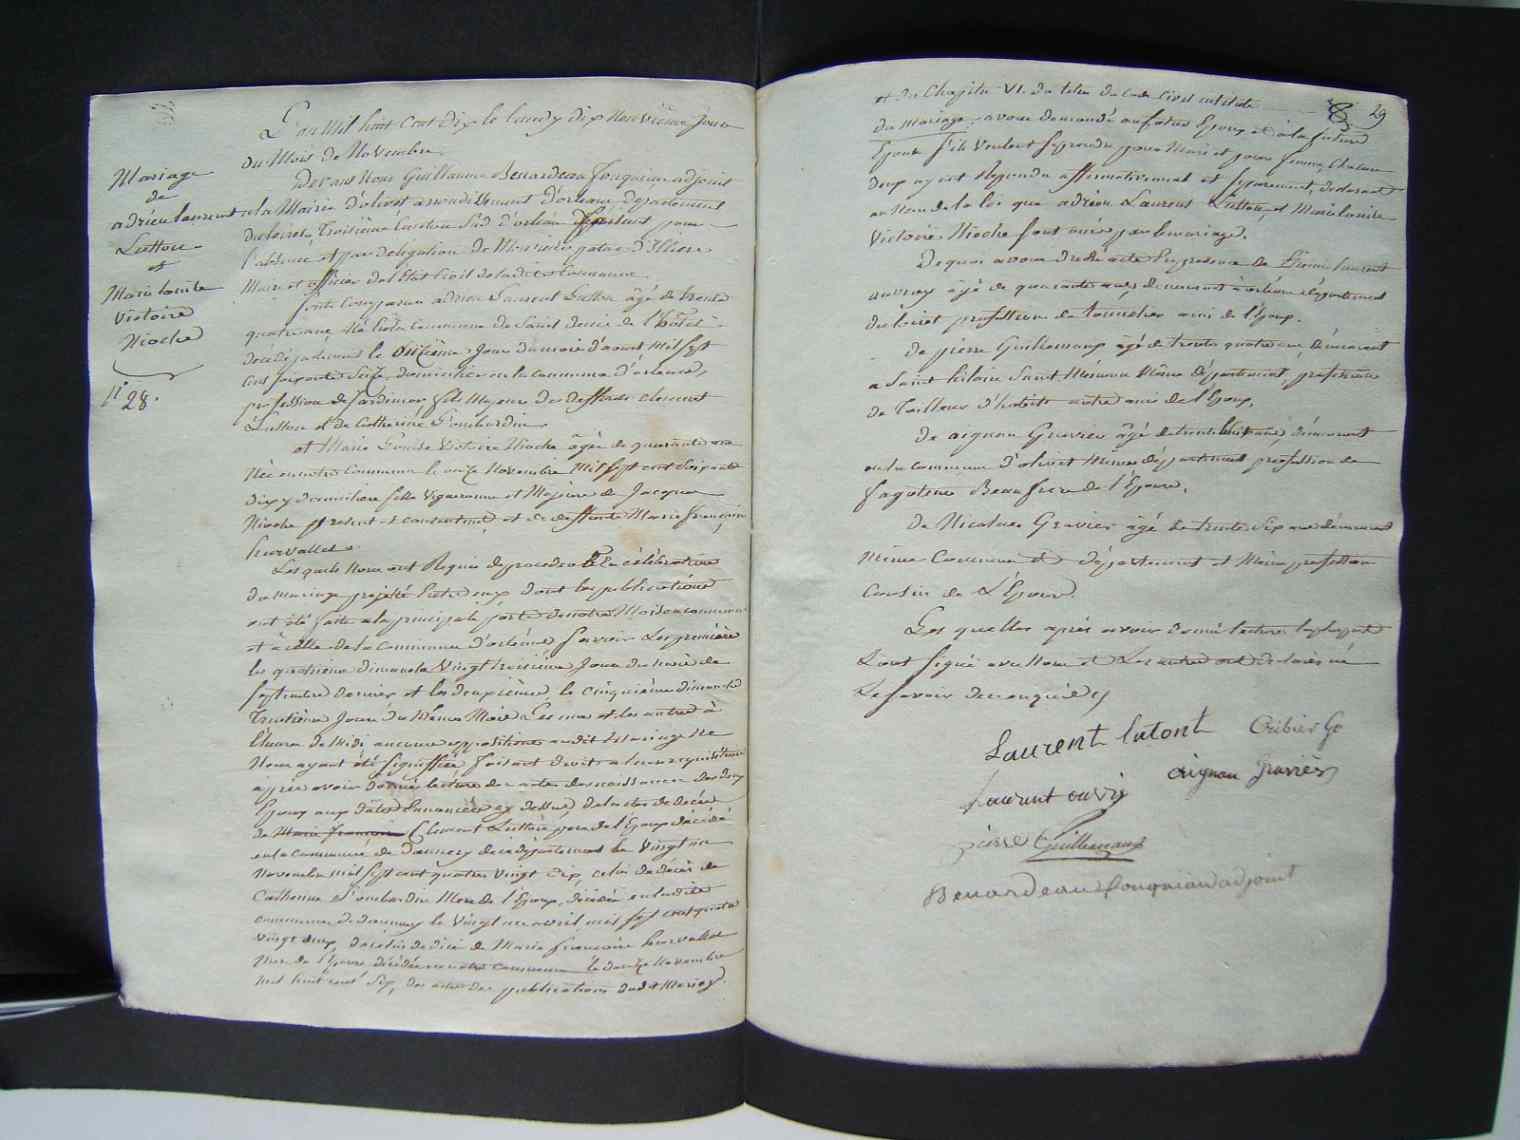 Mariage
de
adrien laurent
Luttou
et
Marie louise
Victoire
Nioche
n° 28.
L'an Mil huit Cent dix le lundy dix Neuvième jour
du Mois de Novembre
devant Nous Guillaume Benardeau fougniau adjoint
a la Mairie d'olivet arrondissement d'orleans, departement
du loiret, troisieme Canton Sud d'orleans pour
l'absence et par delegation de Monsieur d'Illiers
Maire et officier de l'Etat Civil de ladite Commune
Sont Comparus adrien Laurent Luttou âgé de trente
quatre ans, Né en la Commune de Saint denis de l'hotel
le onzième Jour du mois d'aoust Mil Sept
Cent soixante Seize, domicilié en la commune d'orleans,
profession de Jardinier fils Majeur de deffunts Clement
Luttou et de Catherine Gombardin
et Marie Louise Victoire Nioche âgée de quarante ans
Née en notre Commune le onze Novembre Mil Sept cent Soixante
dix y domiciliée fille Vigneronne et Majeure de Jacques
Nioche present et consentant et de deffunte Marie françoise
hurvallet
Lesquels Nous ont Requis de proceder à la célébration
du Mariage projetté Entre eux dont les publications
ont été faites a la principale porte de notre Maison commune
et à celle de la Commune d'orleans Savoir les premières
le quatrieme dimanche Vingt troisième Jour du mois de
Septembre dernier et les deuxièmes le cinquième dimanche
Trentième Jour du Même Mois Les unes et les autres à
l'heure de Midi aucune opposition audit Mariage Ne
Nous ayant été signiffiée faisant droit a leur requisition
après avoir donné lecture des actes de naissance des deux
Epoux aux dates Enoncées cy dessus, de l'acte de décès
de Marie françoise Clement Luttou pere de l'Epoux décédé
en la commune de Donnery de ce département le Vingt un
Novembre mil Sept cent quatre Vingt dix celui de décès de
Catherine Gombardin Mere de l'Epoux, décédée en ladite
commune de donnery le Vingt un avril mil sept cent quatre
vingt onze, de celui de décès de Marie françoise hurvallet
Mere de l'Epouse décédée en notre commune le douze Novembre
mil huit cent Six, des actes de publications dudit Mariage
29
et du Chapitre VI. du titre du Code Civil intitulé
du Mariage, avons demandé au futur Epoux et à la future
Epouse s'ils Veulent se prendre pour Mari et pour femme, Chacun
d'eux ayant Repondu affirmativement et separement, declarons
au Nom de la loi que adrien Laurent Luttou et Marie louise
Victoire Nioche sont unis par le mariage.
De quoi avons dressé acte En presence de Laurent
auvray âgé de quarante ans, demeurant à orleans département
du loiret profession de tonnelier ami de l'Epoux.
de pierre Guillemaux âgé de trente quatre ans, demeurant
a Saint hilaire Saint Mesmin Même département, profession
de Tailleur d'habits autre ami de l'Epoux,
de aignan Gravier âgé de trente huit ans, demeurant
en la commune d'olivet Même département profession de
fagoteur Beau frere de l'Epouse,
de Nicolas Gravier âgé de trente Six ans demeurant
Même Commune et département et Même profession
Cousin de l'Epouse
Les quelles après avoir donné lecture
l'ont signé avec Nous et Les autres ont declarés ne
Le Savoir de ce enquis
Laurent lutont Cribier Ge
aignan Gravier
Laurent auvry
pierre Guillemaux
Benardeau fougniau adjoint